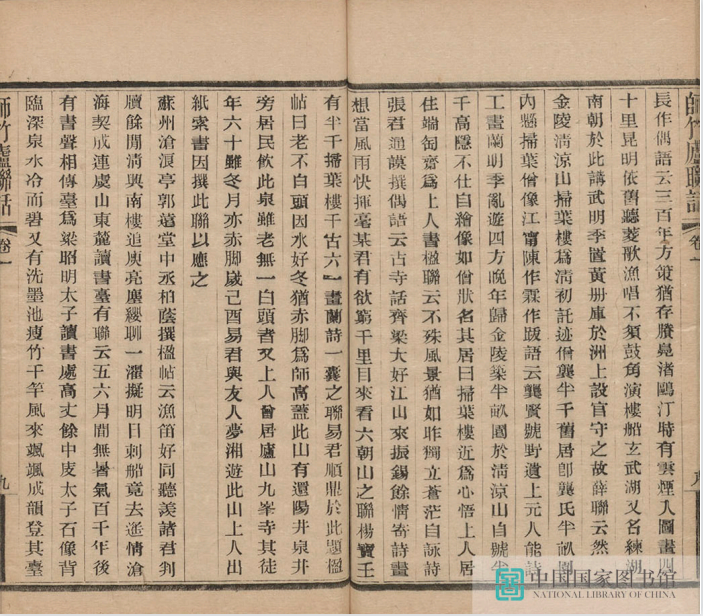 師竹廬聯話 卷一
長作偶語云三百年方策猶存賸鳧渚鷗汀時有雲煙入圖畫四
十里昆明依舊聽菱歌漁唱不須鼓角演樓船玄武湖又名練湖
南朝於此講武明季置黃册庫於洲上設官守之故薛聯云然
金陵清涼山掃葉樓爲清初託迹僧龔半千舊居卽龔氏半畝園
內懸掃葉僧像江甯陳作霖作跋語云龔賢號野遺上元人能詩
工畫蘭明季亂遊四方晚年歸金陵築半畝園於清涼山自號半
千高隱不仕自繪像如僧狀名其居曰掃葉樓近爲心悟上人居
住端匋齋爲上人書楹聯云不殊風景猶如昨獨立蒼茫自詠詩
張君通謨撰偶語云古寺話齊梁大好江山來振錫餘情寄詩畫
想當風雨快揮毫某君有欲窮千里目來看六朝山之聯楊寶壬
有半千掃葉樓千古六一畫蘭詩一囊之聯易君順鼎於此題楹
帖曰老不白頭因水好冬猶赤脚爲師高蓋此山有還陽井泉井
旁居民飲此泉雖老無一白頭者又上人曾居廬山九峯寺其徒
年六十雖冬月亦赤脚歲己酉易君與友人夢湘遊此山上人出
紙索書因撰此聯以應之
蘇州滄浪亭郭遠堂中丞柏蔭撰楹帖云漁笛好同聽羨諸君判
牘餘閒清興南樓追庾亮塵纓聊一濯擬明日刺船竟去遙情滄
海契成連虞山東麓讀書臺有聯云五六月間無暑氣百千年後
有書聲相傳臺爲梁昭明太子讀書處高丈餘中庋太子石像背
臨深泉水冷而碧又有洗墨池瘦竹千竿風來颯颯成韻登其臺
師竹廬聯話 卷一
九
中国国家图书馆
NATIONAL LIBRARY OF CHINA